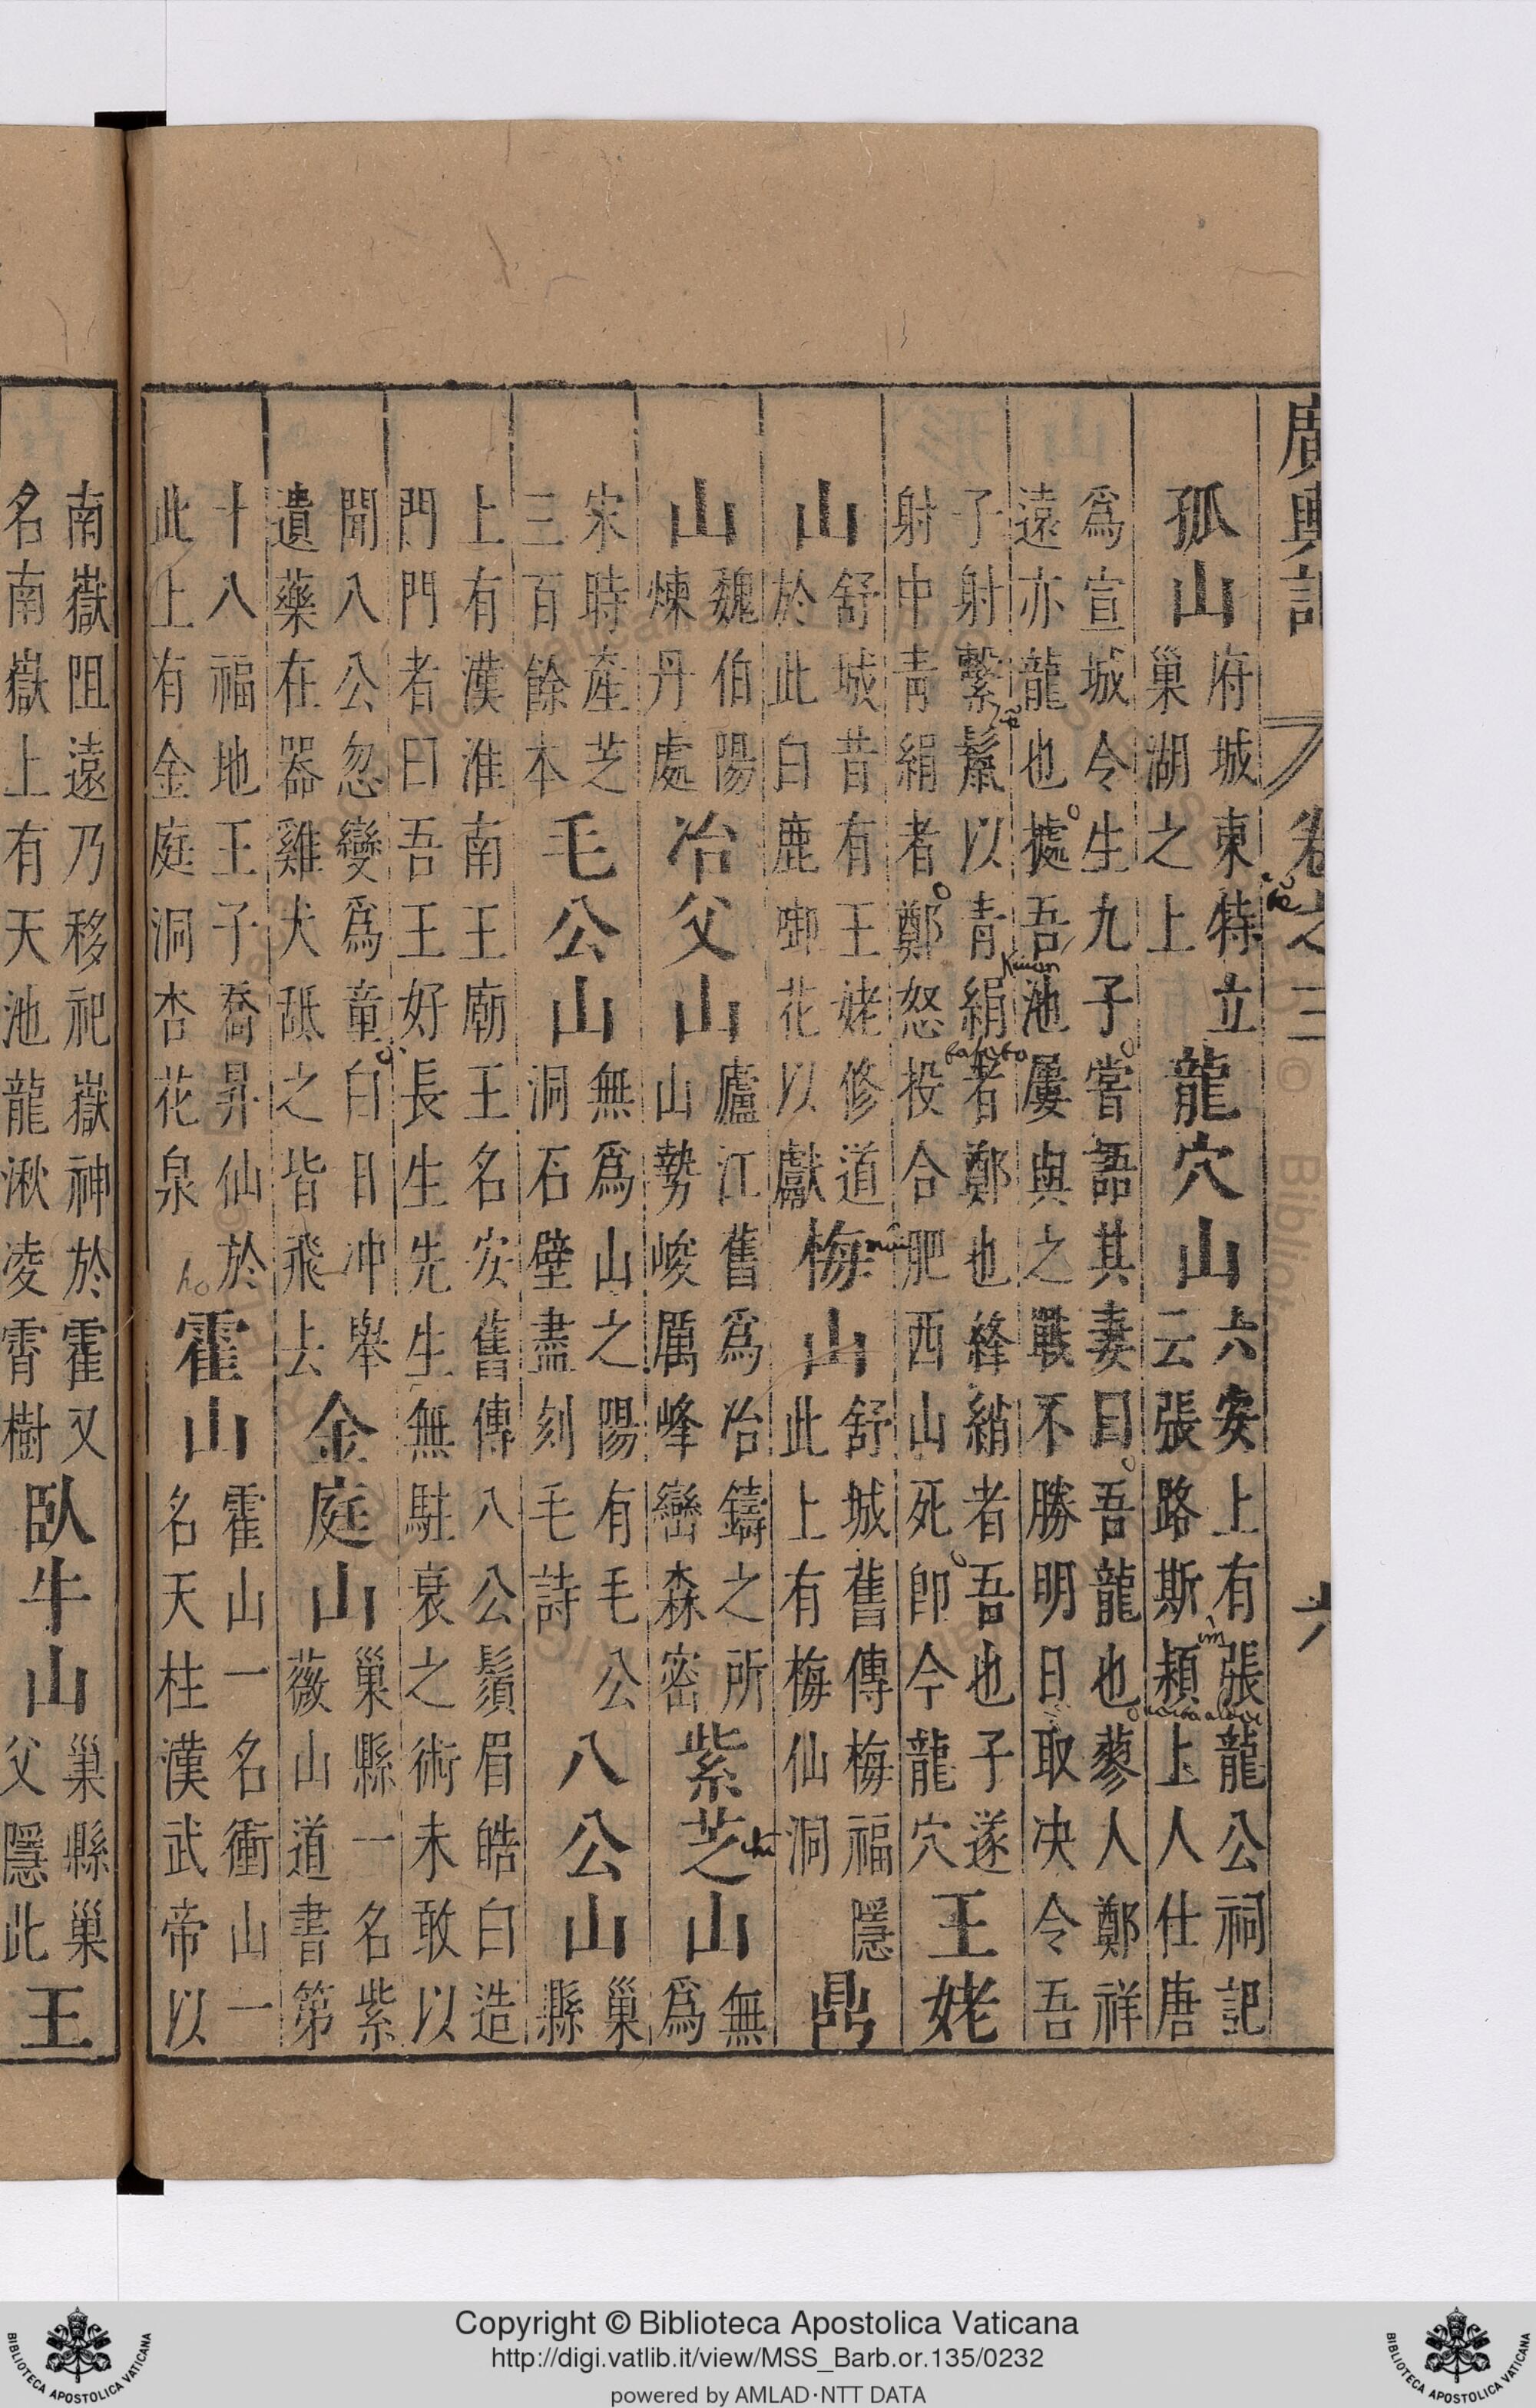 廣輿記 卷之二 六
孤山
府城東特立
巢湖之上
龍穴山
六安上有張龍公祠記
云張路斯潁上人仕唐
爲宣城令生九子嘗語其妻曰吾龍也蓼人鄭祥
遠亦龍也據吾池屢與之戰不勝明日取决令吾
子射繫鬣以青絹者鄭也絳綃者吾也子遂
射中青絹者鄭怒投合肥西山死卽今龍穴
王姥
山
舒城昔有王姥修道
於此白鹿啣花以獻
梅山
舒城舊傳梅福隱
此上有梅仙洞
鼎
山
魏伯陽
煉丹處
冶父山
廬江舊爲冶鑄之所
山勢峻厲峰巒森密
紫芝山
無
爲
宋時産芝
三百餘本
毛公山
無爲山之陽有毛公
洞石壁盡刻毛詩
八公山
巢
縣
上有漢淮南王廟王名安舊傳八公鬚眉皓白造
門門者曰吾王好長生先生無駐衰之術未敢以
聞八公忽變爲童白日冲舉
遺藥在器雞犬舐之皆飛去
金庭山
巢縣一名紫
薇山道書第
十八福地王子喬昇仙於
此上有金庭洞杏花泉
ho
霍山
霍山一名衝山一
名天柱漢武帝以
南嶽阻遠乃移祀嶽神於霍又
名南嶽上有天池龍湫凌霄樹
臥牛山
巢縣巢
父隱此
王
Copyright © Biblioteca Apostolica Vaticana
http://digi.vatlib.it/view/MSS_Barb.or.135/0232
powered by AMLAD·NTT DATA
BIBLIOTECA APOSTOLICA VATICANA
BIBLIOTECA APOSTOLICA VATICANA